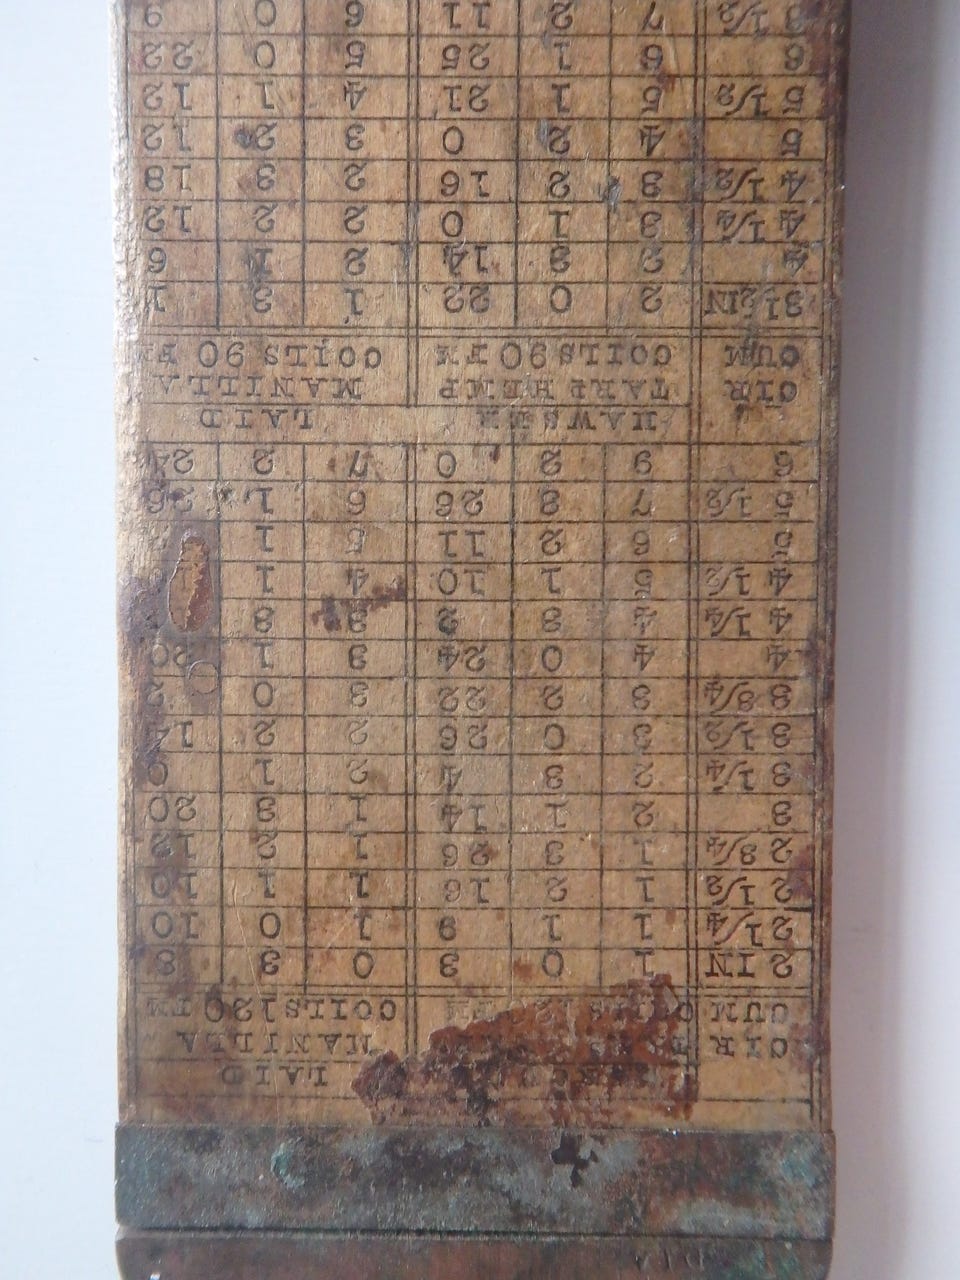 LAID
CIR MANILLA
CUM COILS 120 FM
2 IN 1 0 3 0 3 8
2 1/4 1 1 9 1 0 10
2 1/2 1 2 16 1 1 10
2 3/4 1 3 26 1 2 12
3 2 1 14 1 3 20
3 1/4 2 3 4 2 1 0
3 1/2 3 0 26 2 2 14
3 3/4 3 2 22 3 0 2
4 4 0 24 3 1 20
4 1/4 4 3 2 3 3
4 1/2 5 1 10 4 1
5 6 2 11 5 1
5 1/2 7 3 26 6 1 26
6 9 2 0 7 2 24
HAWSER LAID
CIR TAR HEMP MANILLA
CUM COILS 90 FM COILS 90 FM
3½IN 2 0 22 1 3 1
4 2 3 14 2 1 6
4 1/4 3 1 0 2 2 12
4 1/2 3 2 16 2 3 18
5 4 2 0 3 2 12
5 1/2 5 1 21 4 1 12
6 6 1 25 5 0 22
1/2 7 2 11 6 0